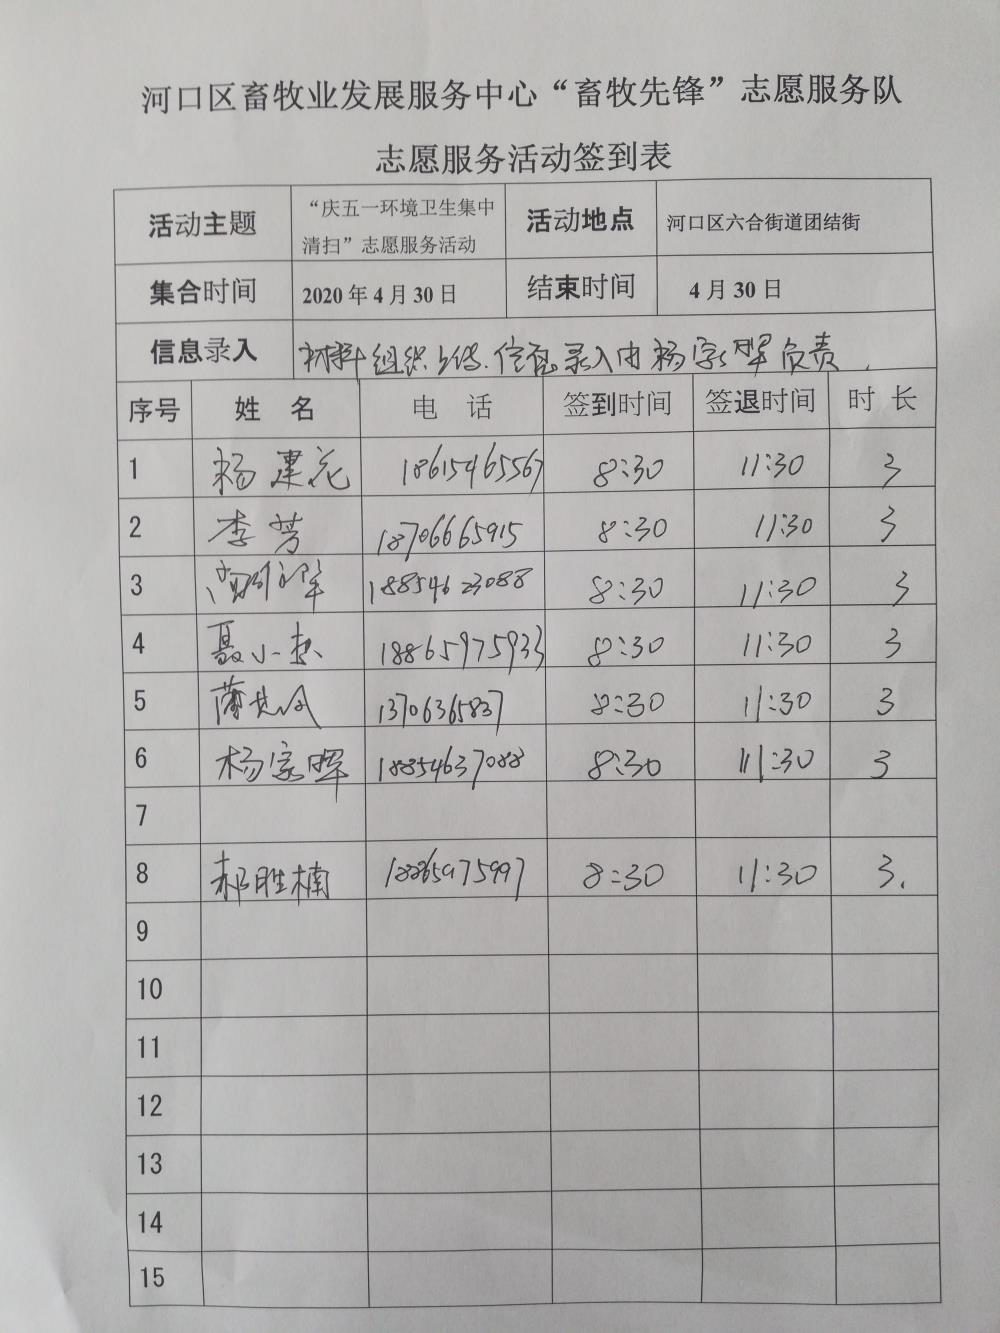 河口区畜牧业发展服务中心“畜牧先锋”志愿服务队
志愿服务活动签到表
活动主题 “庆五一环境卫生集中清扫”志愿服务活动 活动地点 河口区六合街道团结街
集合时间 2020 年 4 月 30 日 结束时间 4 月 30 日
信息录入 材料组织上传、信息录入由杨家晖负责.
序号 姓 名 电 话 签到时间 签退时间 时 长
1 杨建花 18615465567 8:30 11:30 3
2 李芳 18706665915 8:30 11:30 3
3 18854623088 8:30 11:30 3
4 聂小 18865975933 8:30 11:30 3
5 薄 13706365837 8:30 11:30 3
6 杨家晖 18854637088 8:30 11:30 3
7
8 郝胜楠 18865975997 8:30 11:30 3.
9
10
11
12
13
14
15